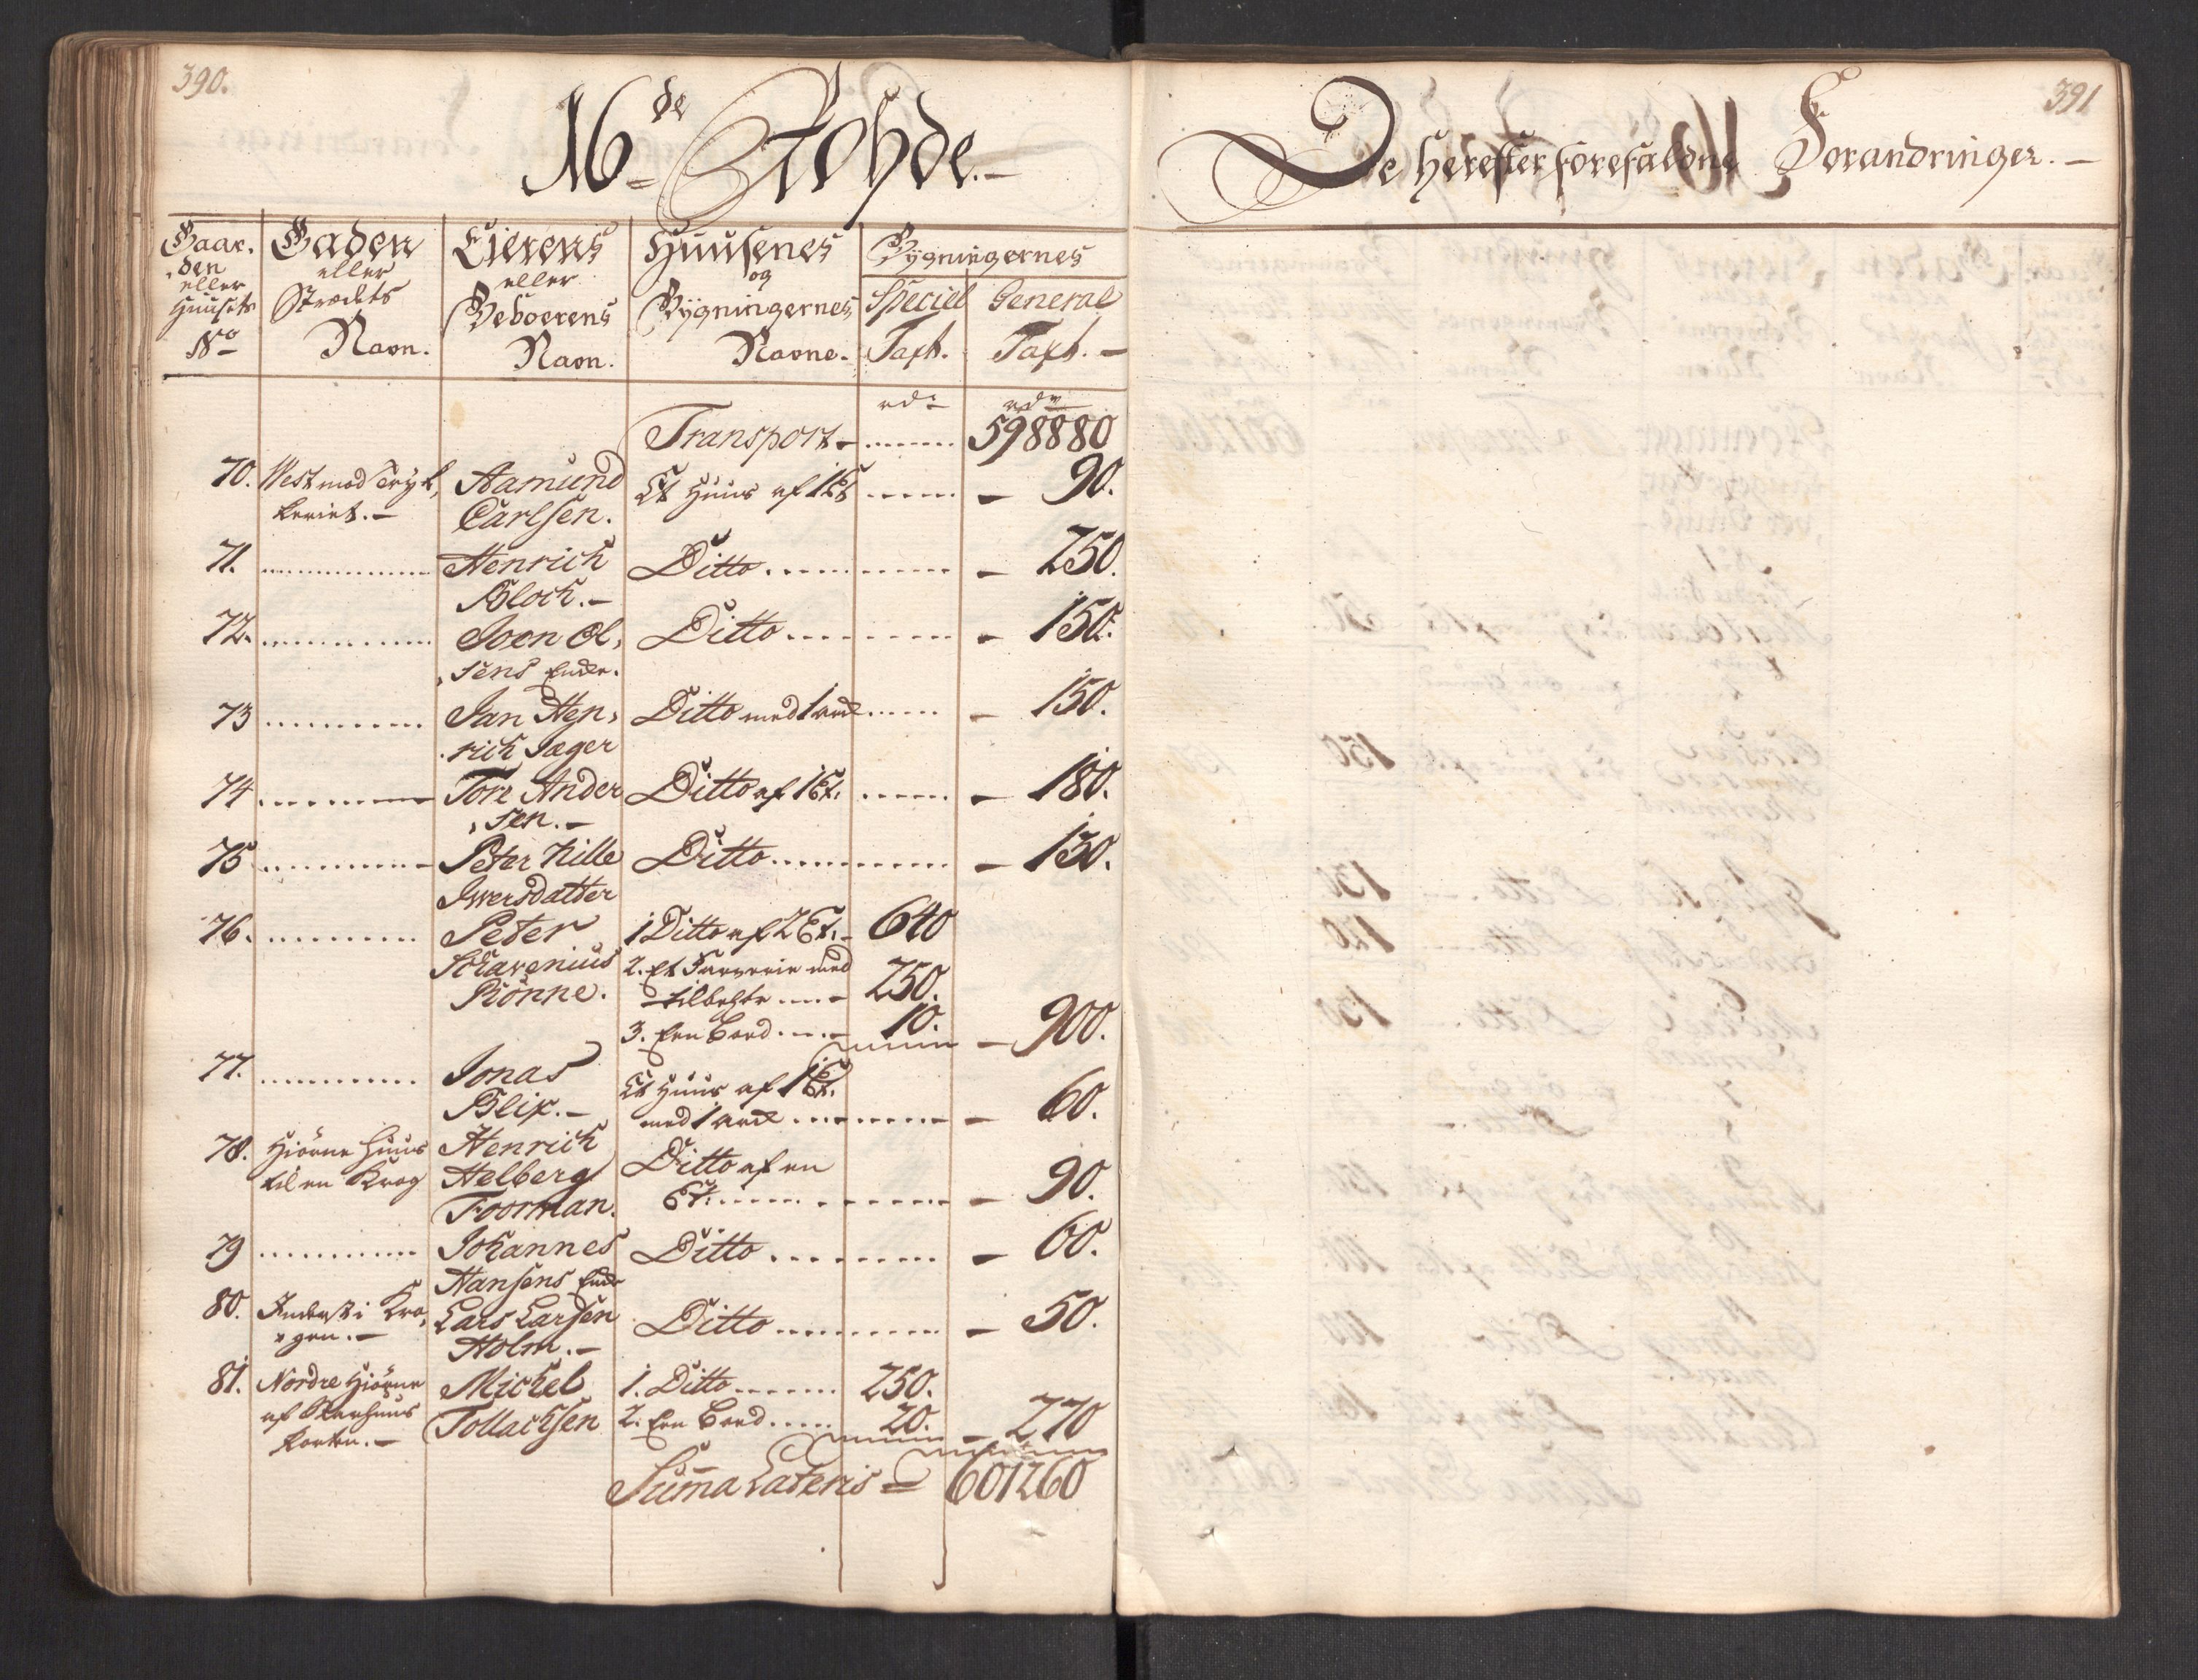 390.
16de Rohde. –
Gaar-
den
eller
Huusets
No
Gaden
eller
Strædets
Navn.
Eierens
eller
Beboerens
Navn.
Huusenes
og
Bygningernes
Navne.
Bygningernes
Speciel
Taxt.
General
Taxt. –
rdr
rdr
Transport – 598880
70. West mod
Aamund
Et Huus af 1 Et – 90.
Carlsen.
71. Henrich Ditto – 250.
Bloch. –
72. Joen Ol, Ditto – 150.
,sens Enke.
73 Jan Hen, Ditto med 1 – 150.
,rich Jæger
74 Tore Ander Ditto af 1 Et. – 180.
,sen. –
75 Peter Hille Ditto – 130.
Iwersdatter
76. Peter 1 Ditto af 2 Et. – 640
Schavenius 2. Et Farverie med
Rönne. tilbehör – 250.
3. Een Boed – 10. – 900.
77. Jonas Et Huus af 1 Et.
Blix. – med 1 – 60.
78. Hiörne Huus Henrich
til en Krog Helberg Ditto af en
Foorman. Et. – 90.
79 Johannes Ditto – 60.
Hansens Enke
80. Inderst i Kro, Lars Larsen Ditto – 50.
,gen. – Holm. –
81. Nordre Hiörne Michel 1. Ditto 250.
af
Tollachsen 2. Een Boed 20. – 270
Summa Lateris = 601260
391
De herefter forefaldne Forandringer. –